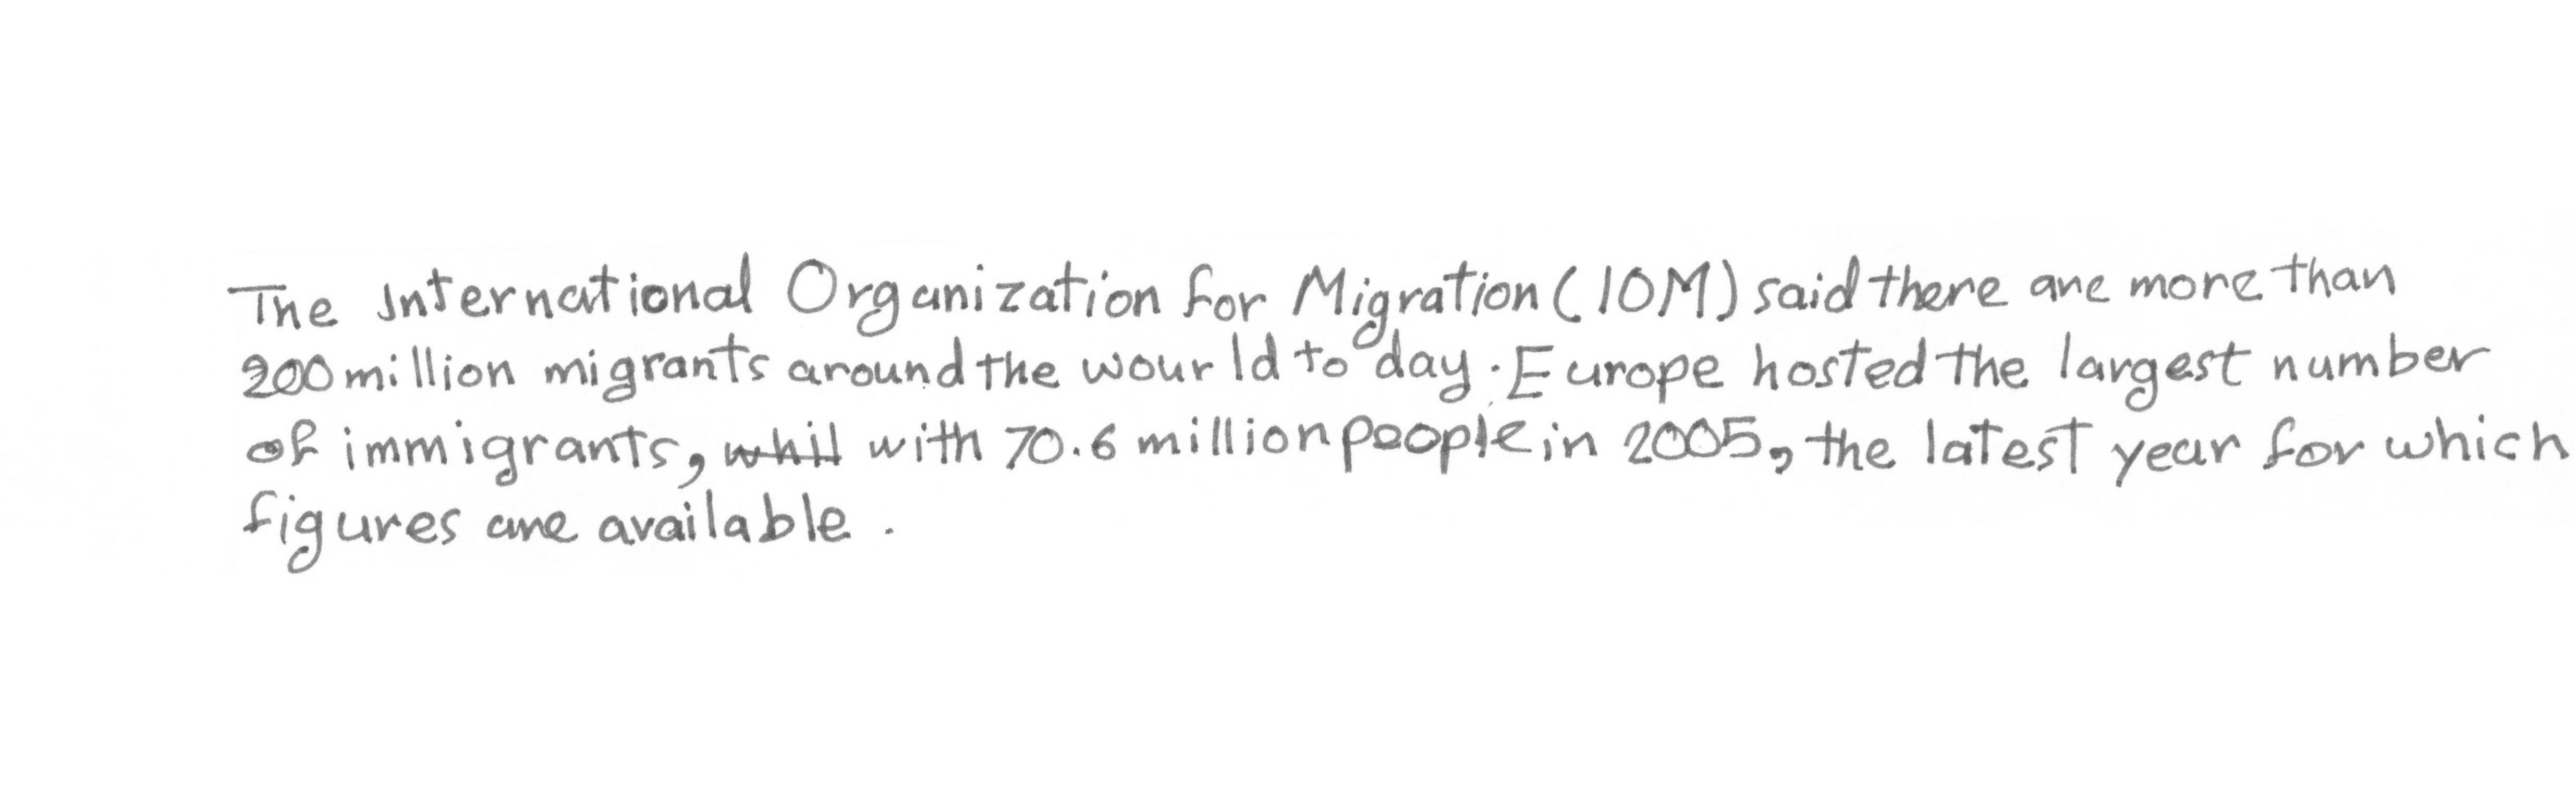 The International Organization for Migration (IOM) said there are more than
200 million migrants around the wourld to day. Europe hosted the largest number
of immigrants, whil with 70.6 million people in 2005, the latest year for which
figures are available.